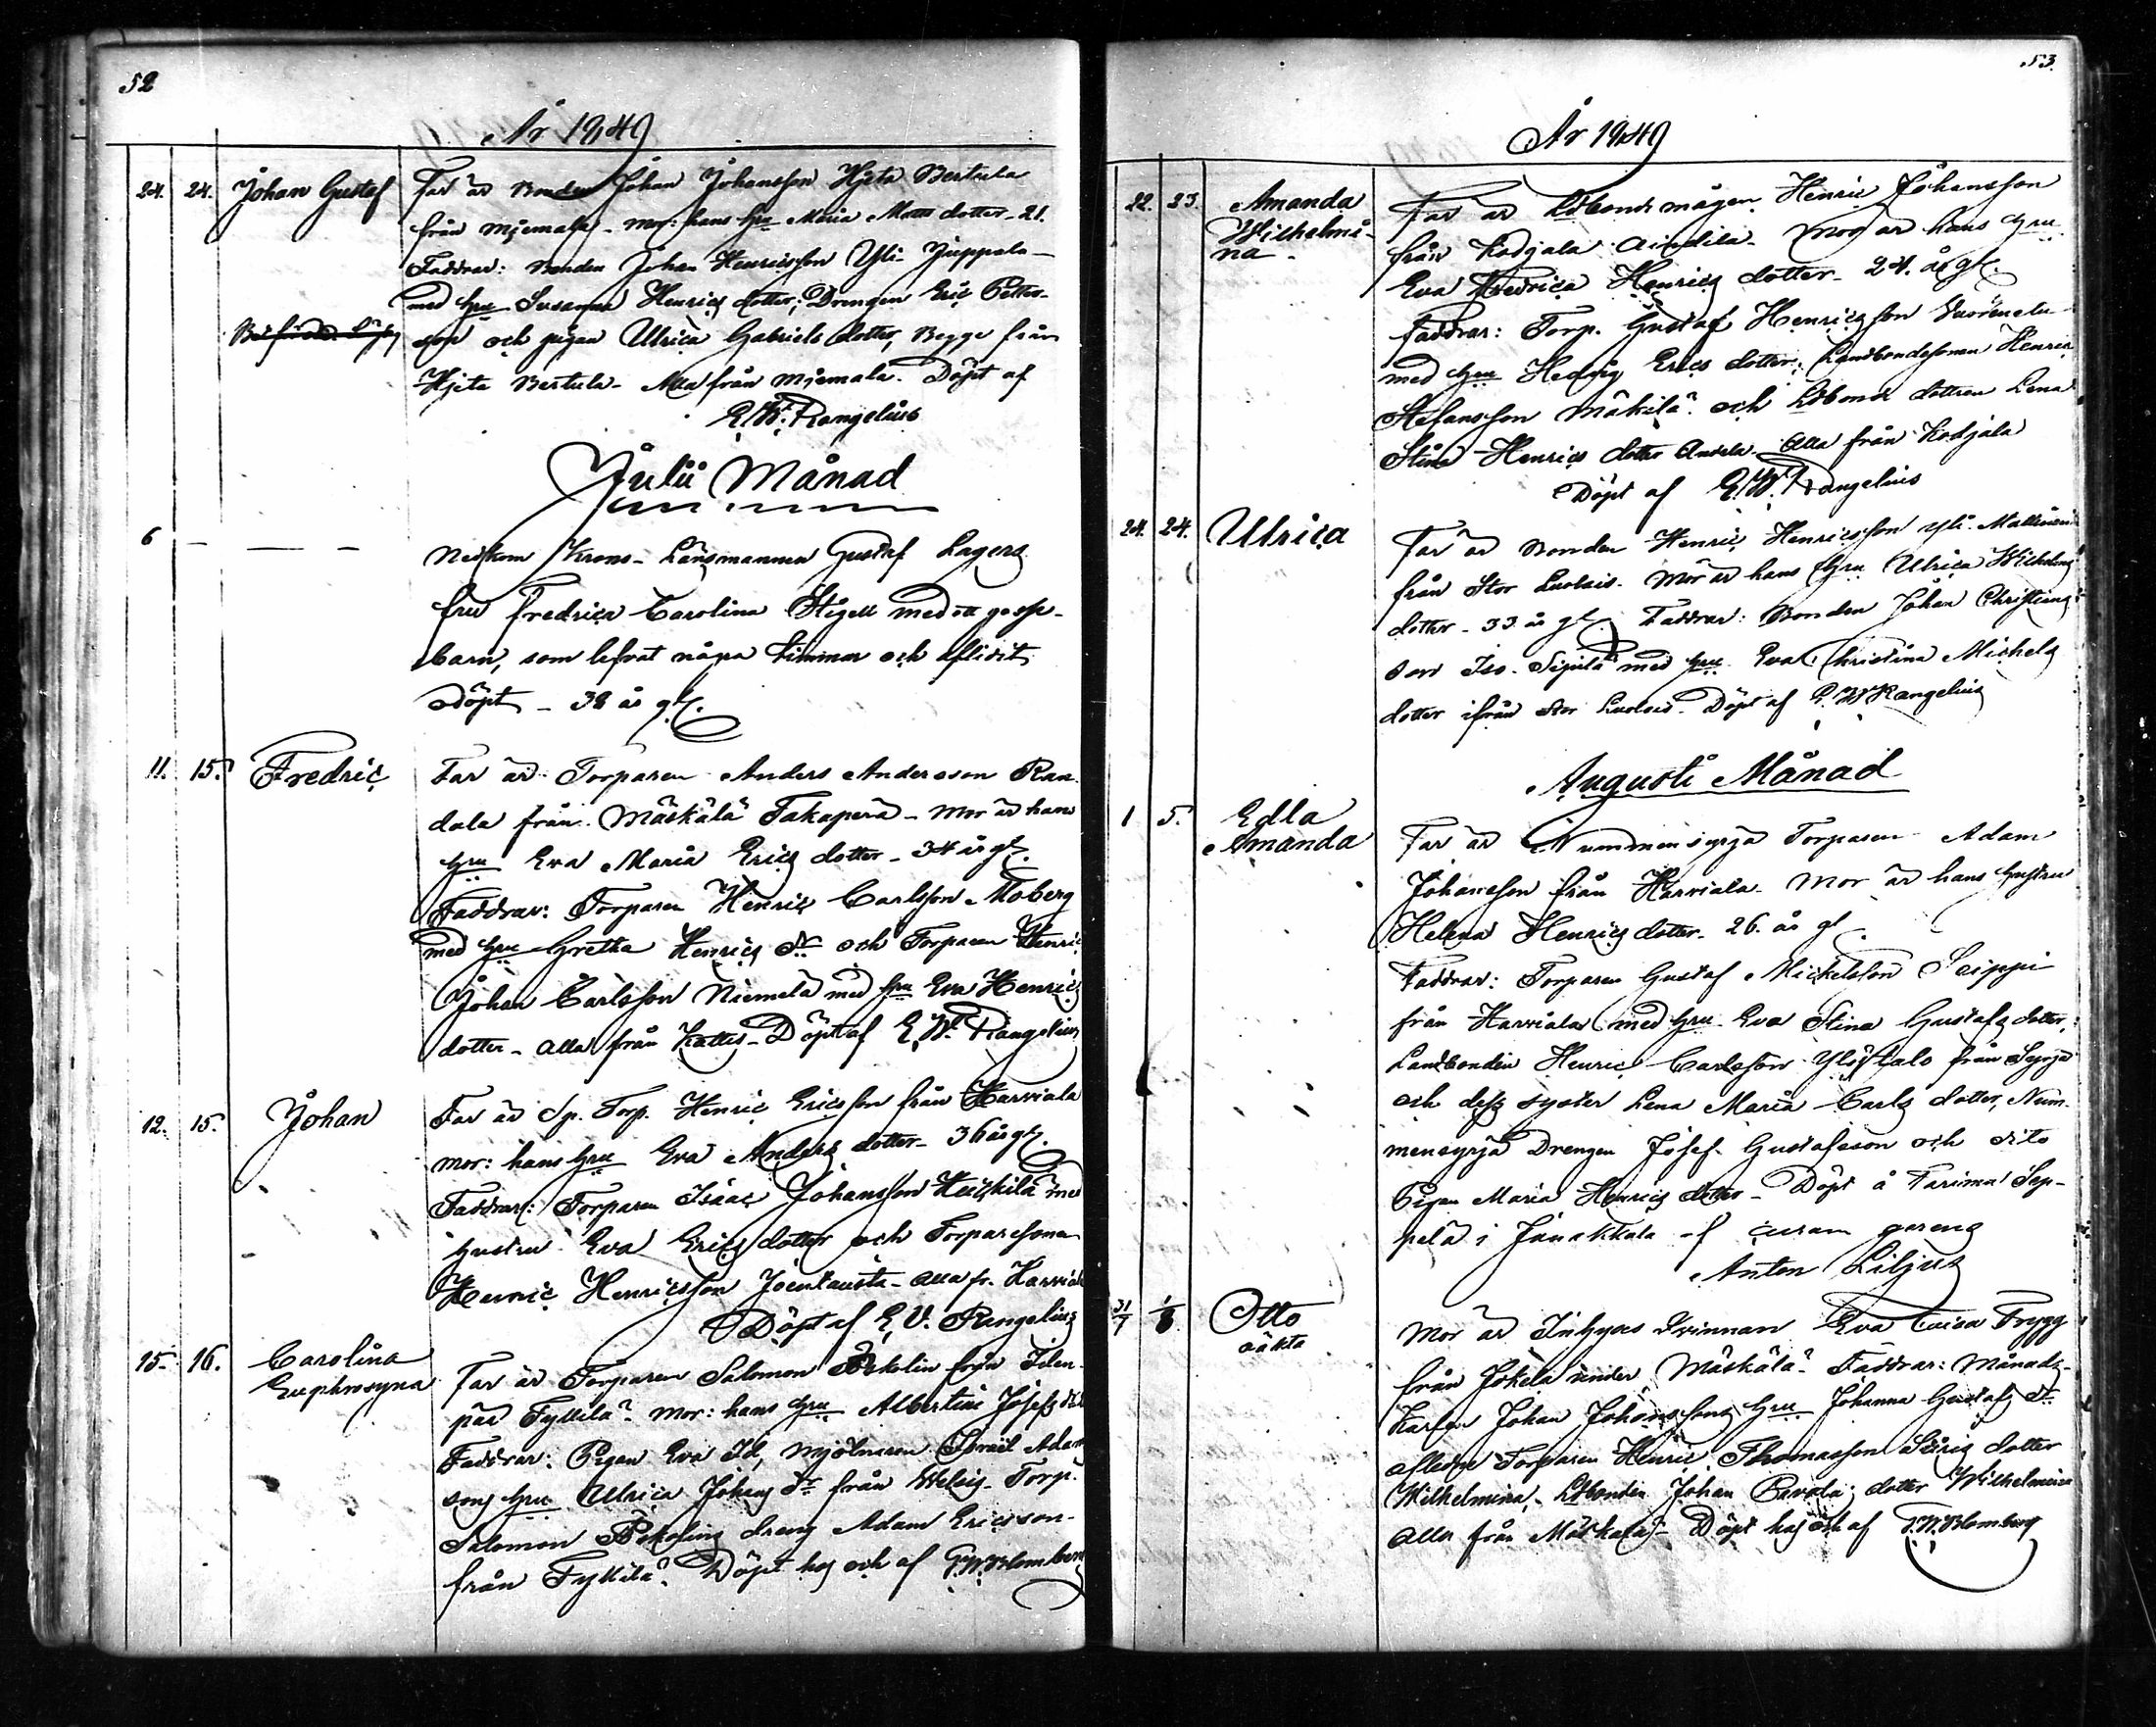 52
År 1849
24. 24. Johan Gustaf Far är Bonden Johan Johansson Hjeta Bertula
från Mjemala - Mor: hans Hru Maria Matts dotter - 21.
Faddrar: Bonden Johan Henricsson Yli-Juppala -
med hru Susanna Henrics dotter; Drengen Eric Petters-
son och pigan Ulrica Gabriels dotter, Begge från
Hjeta Bertula - Alla från Mjemala. Döpt af
E. W. Rangelius
Julii Månad
6 - - - Nedkom Krono-Länsmannen Gustaf Lagers
fru Fredrica Carolina Stigell med ett goss-
barn, som lefvat några timmar och aflidit
odöpt - 38 år gl.
11. 15. Fredric Far är Torparen Anders Andersson Ran-
dala från Mäskälä Takaperä - Mor är hans
hru Eva Maria Erics dotter - 34 år gl.
Faddrar: Torparen Henric Carlsson Moberg
med hru Gretha Henrics dr och Torparen Henric
Johan Carlsson Niemelä med hru Eva Henrics
dotter - alla från Kattis - Döpt af E. W. Rangelius
12. 15. Johan Far är Sp. Torp. Henric Ericsson från Harviala
mor: hans hru Eva Anders dotter - 36 år gl.
Faddrar: Torparen Isaac Johansson Heickilä med
hustru Eva Erics dotter och Torparesonen
Henric Henricsson Joentausta - alla fr. Harviala
Döpt af E. W. Rangelius
15. 16. Carolina Far är Torparen Salomon Eskolin från Iden-
Euphrosyna pää Tyllilä. Mor: hans hru Albertina Josefs dr
Faddrar: Pigan Eva Id, Mjölnaren Israel Adam
sons hru Ulrica Johans dr från Weksis. Torp.
Salomon Eskolins dreng Adam Ericsson
från Tyllilä. Döpt hos och af G. W. Blomberg
53.
År 1849
22. 23. Amanda Far är Ldbonde mågen Henric Johansson
Wilhelmi- från Kodjala Aindila - Mor är hans hru
na - Eva Fredrica Henrics dotter - 24. år gl.
Faddrar: Torp. Gustaf Henricsson Vuorenela
med hru Hedvig Erics dotter; Landbondesonen Henric
Stefansson Mäkilä och Ldbonde dottren Lena
Stina Henrics dotter Andela - Alla från Kodjala
Döpt af E. W. Rangelius
24. 24. Ulrica Far är Bonden Henric Henricsson Yli-Mattinen
från Stor Luolais - Mor är hans hru Ulrica Wilhelms
dotter - 33 år gl. Faddrar: Bonden Johan Christians-
son Iso-Sipilä med hru Eva Christina Michels
dotter ifrån Stor Luolais - Döpt af E. W. Rangelius
Augusti Månad
1 5. Edla Far är Nummensyrjä Torparen Adam
Amanda Johansson från Harviala - Mor är hans hustru
Helena Henrics dotter - 26. år gl
Faddrar: Torparen Gustaf Mickelsson Seippi
från Harviala med hru Eva Stina Gustafs dotter,
Landbonden Henric Carlsson Ylöstalo från Syrjä
och dess syster Lena Maria Carls dotter, Num-
mensyrjä Drengen Josef Gustafsson och dito
Pigan Maria Henrics dotter - Döpt å Tarinma Sep-
pelä i Janakkala af curam gerens
Anton Liljus
31/7 1/8 Otto Mor är Inhyses Qvinnan Eva Caisa Trygg
oäkta från Jokela under Mäskälä. Faddrar: Månads-
Karlen Johan Johanssons hru Johanna Gustafs dr
afledne Torparen Henric Thomasson Säris dotter
Wilhelmina - Ldbonden Johan Parvola dotter Wilhelmina
alla från Mäskälä - Döpt hos och af G. W. Blomberg